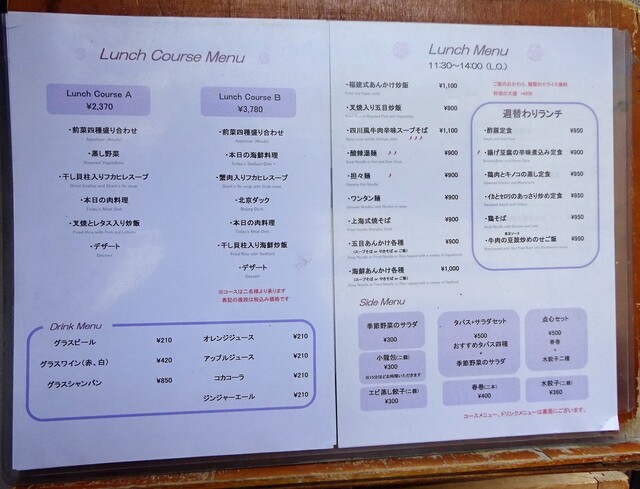 Lunch Course Menu
Lunch Course A
¥2,370
・前菜四種盛り合わせ
・蒸し野菜
・干し貝柱入りフカヒレスープ
・本日の肉料理
・叉焼とレタス入り炒飯
・デザート
Dessert
Lunch Course B
¥3,780
・前菜四種盛り合わせ
・本日の海鮮料理
・蟹肉入りフカヒレスープ
・北京ダック
・本日の肉料理
・干し貝柱入り海鮮炒飯
・デザート
Dessert
※コースは二名様より承ります
表記の値段は税込み価格です
Drink Menu
グラスビール ¥210
グラスワイン(赤、白) ¥420
グラスシャンパン ¥850
オレンジジュース ¥210
アップルジュース ¥210
コカコーラ ¥210
ジンジャーエール ¥210
Lunch Menu
11:30～14:00 (L.O.)
・福建式あんかけ炒飯 ¥1,100
・叉焼入り五目炒飯 ¥900
・四川風牛肉辛味スープそば ¥1,100
・酸辣湯麺 ¥900
・担々麺 ¥900
・ワンタン麺 ¥900
・上海式焼そば ¥900
・五目あんかけ各種 ¥900
(スープそば or やきそば or ご飯)
・海鮮あんかけ各種 ¥1,000
(スープそば or やきそば or ご飯)
週替わりランチ
・酢豚定食 ¥950
・揚げ豆腐の辛味煮込み定食 ¥900
・鶏肉とキノコの蒸し定食 ¥950
・イカとセロリのあっさり炒め定食 ¥950
・鶏そば ¥950
・牛肉の豆鼓炒めのせご飯 ¥950
Side Menu
季節野菜のサラダ
¥300
小籠包(二個)
¥300
※15分ほどお時間いただきます
エビ蒸し餃子(二個)
¥300
タパス+サラダセット
¥500
おすすめタパス四種
+
季節野菜のサラダ
春巻(二本)
¥400
点心セット
¥500
春巻
+
水餃子二種
水餃子(二個)
¥360
コースメニュー、ドリンクメニューは裏面にございます。